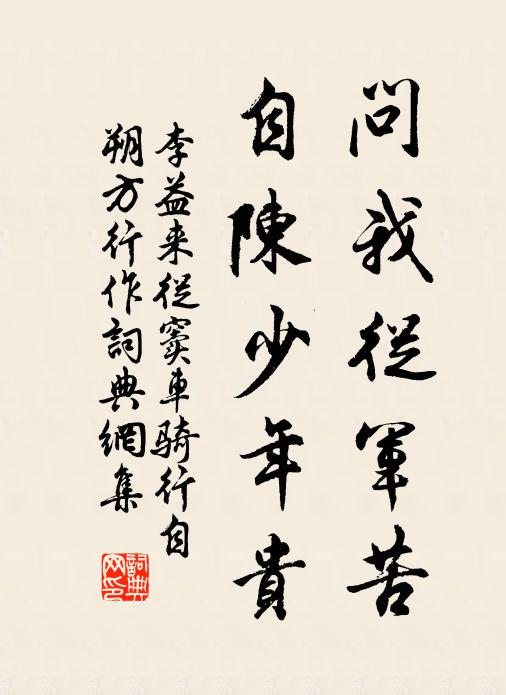 問我從軍苦
自陳少年貴
李益来從竇車騎行自
朔方行作詞典網集
詞典
网印